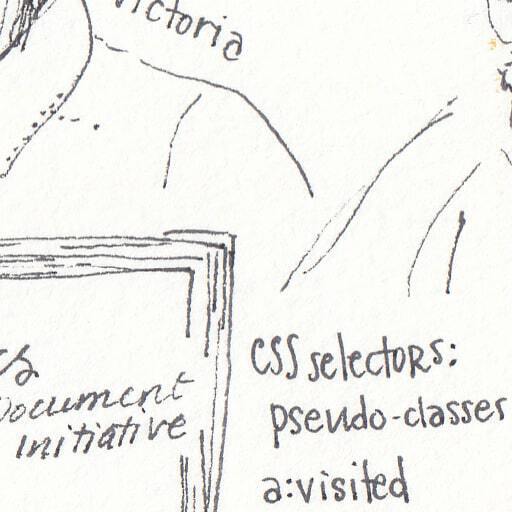 Victoria
Document
Initiative
CSS selectors:
pseudo-classes
a:visited